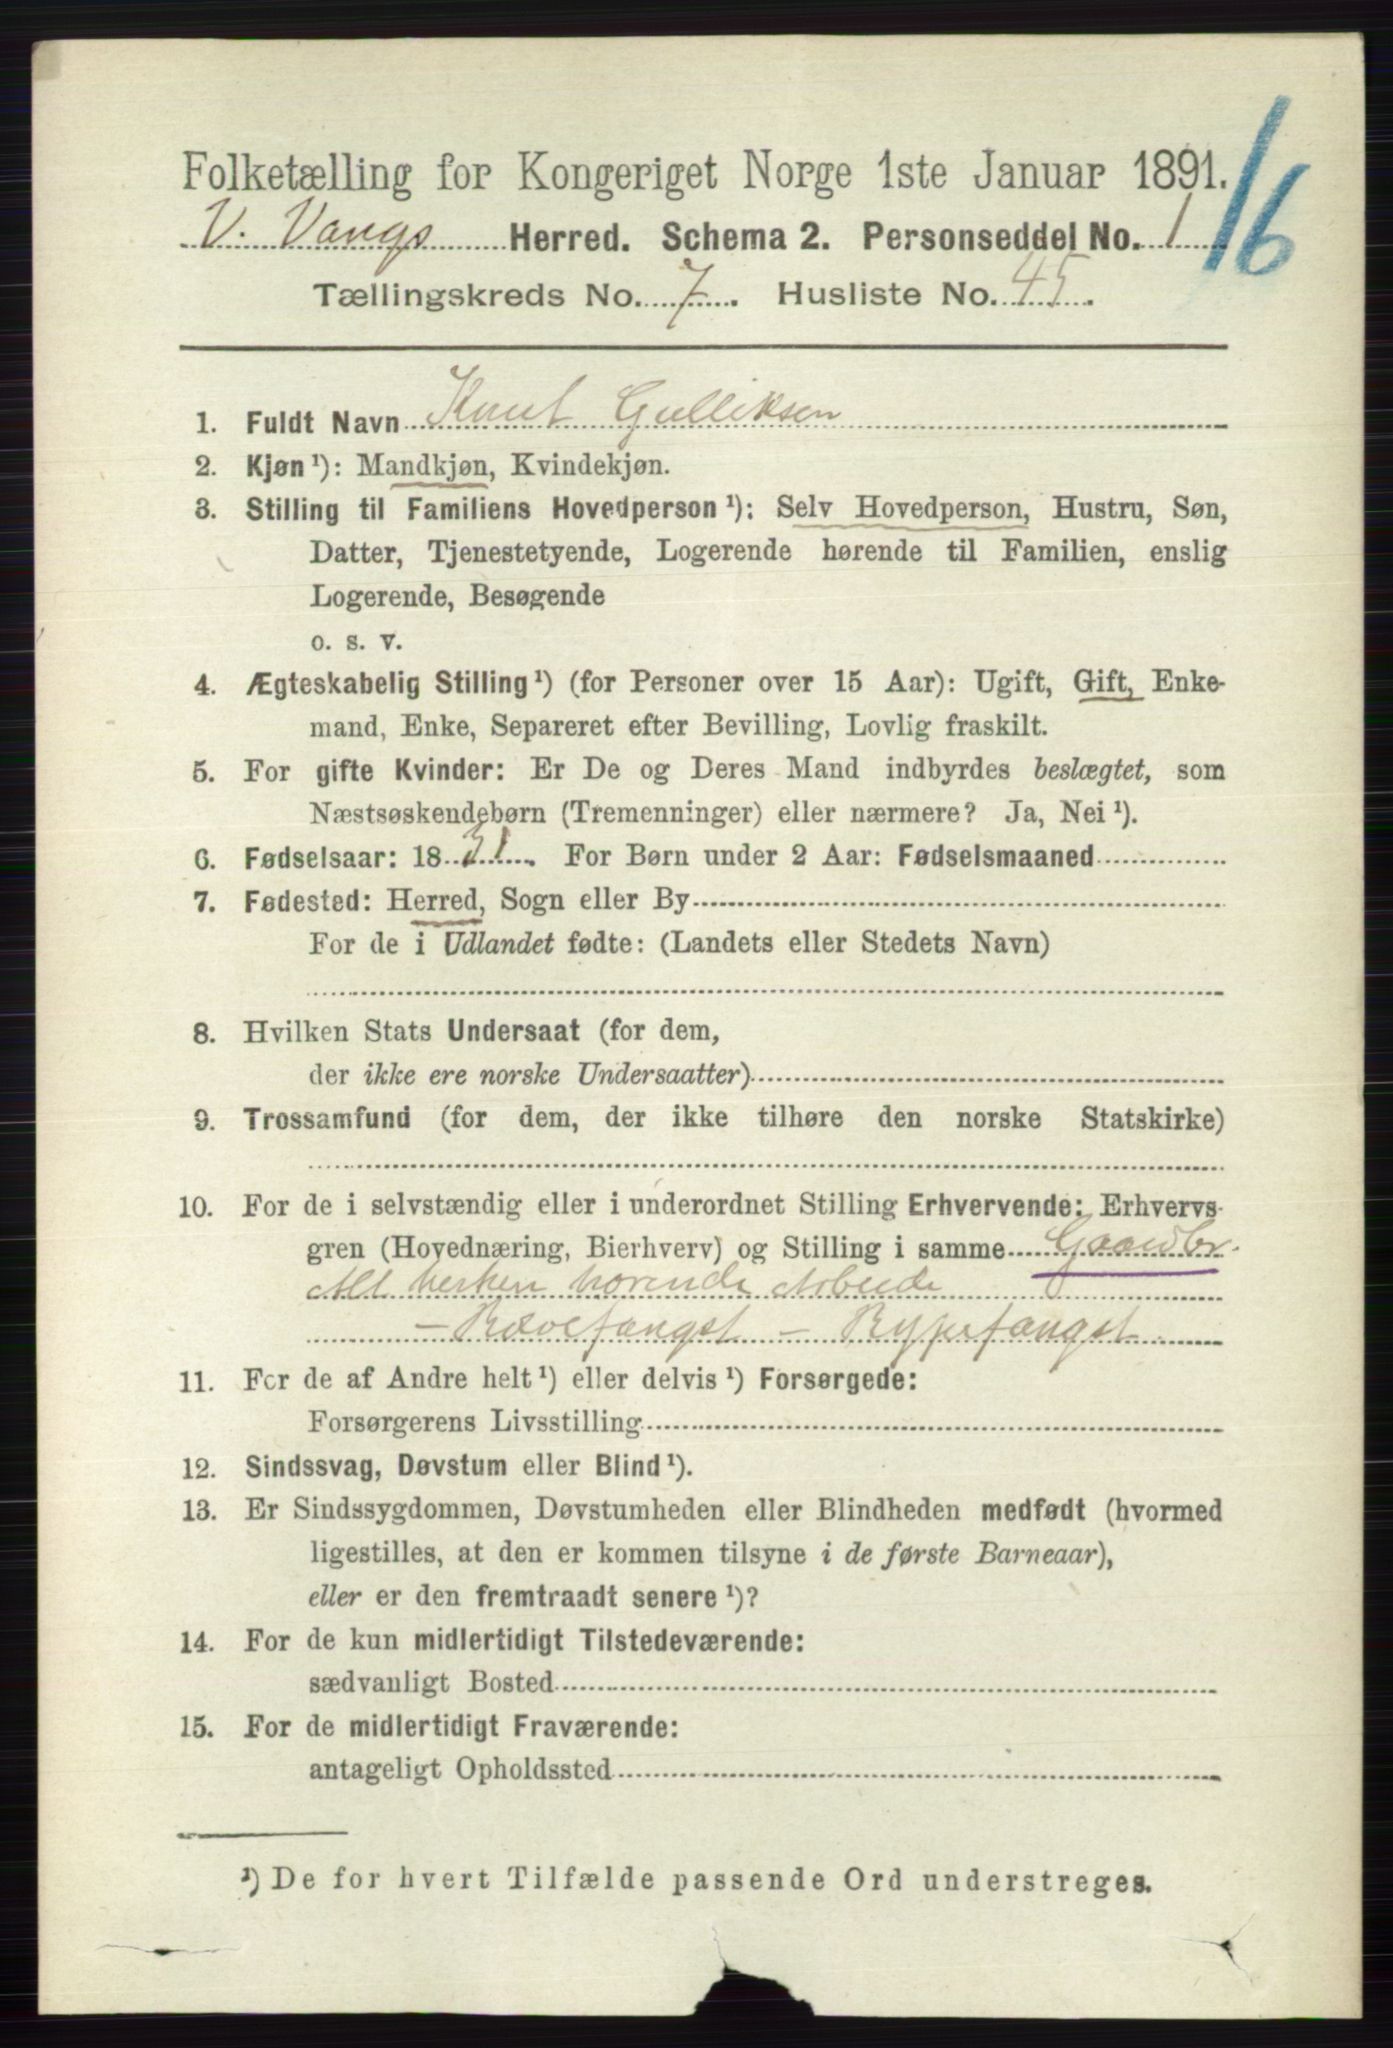 Folketælling for Kongeriget Norge 1ste Januar 1891.
16
V. Vangs Herred. Schema 2. Personseddel No. 1
Tællingskreds No. 7. Husliste No. 45.
1. Fuldt Navn Knut Gulliksen
2. Kjøn ¹): Mandkjøn, Kvindekjøn.
3. Stilling til Familiens Hovedperson ¹): Selv Hovedperson, Hustru, Søn,
Datter, Tjenestetyende, Logerende hørende til Familien, enslig
Logerende, Besøgende
o. s. v.
4. Ægteskabelig Stilling ¹) (for Personer over 15 Aar): Ugift, Gift, Enke-
mand, Enke, Separeret efter Bevilling, Lovlig fraskilt.
5. For gifte Kvinder: Er De og Deres Mand indbyrdes beslægtet, som
Næstsøskendebørn (Tremenninger) eller nærmere? Ja, Nei ¹).
6. Fødselsaar: 1831. For Børn under 2 Aar: Fødselsmaaned
7. Fødested: Herred, Sogn eller By
For de i Udlandet fødte: (Landets eller Stedets Navn)
8. Hvilken Stats Undersaat (for dem,
der ikke ere norske Undersaatter)
9. Trossamfund (for dem, der ikke tilhøre den norske Statskirke)
10. For de i selvstændig eller i underordnet Stilling Erhvervende: Erhvervs-
gren (Hovednæring, Bierhverv) og Stilling i samme Gaardbr.
Alt herhen hørende Arbeide
- Rævefangst - Rypefangst
11. For de af Andre helt ¹) eller delvis ¹) Forsørgede:
Forsørgerens Livsstilling
12. Sindssvag, Døvstum eller Blind ¹).
13. Er Sindssygdommen, Døvstumheden eller Blindheden medfødt (hvormed
ligestilles, at den er kommen tilsyne i de første Barneaar),
eller er den fremtraadt senere ¹)?
14. For de kun midlertidigt Tilstedeværende:
sædvanligt Bosted
15. For de midlertidigt Fraværende:
antageligt Opholdssted
¹) De for hvert Tilfælde passende Ord understreges.